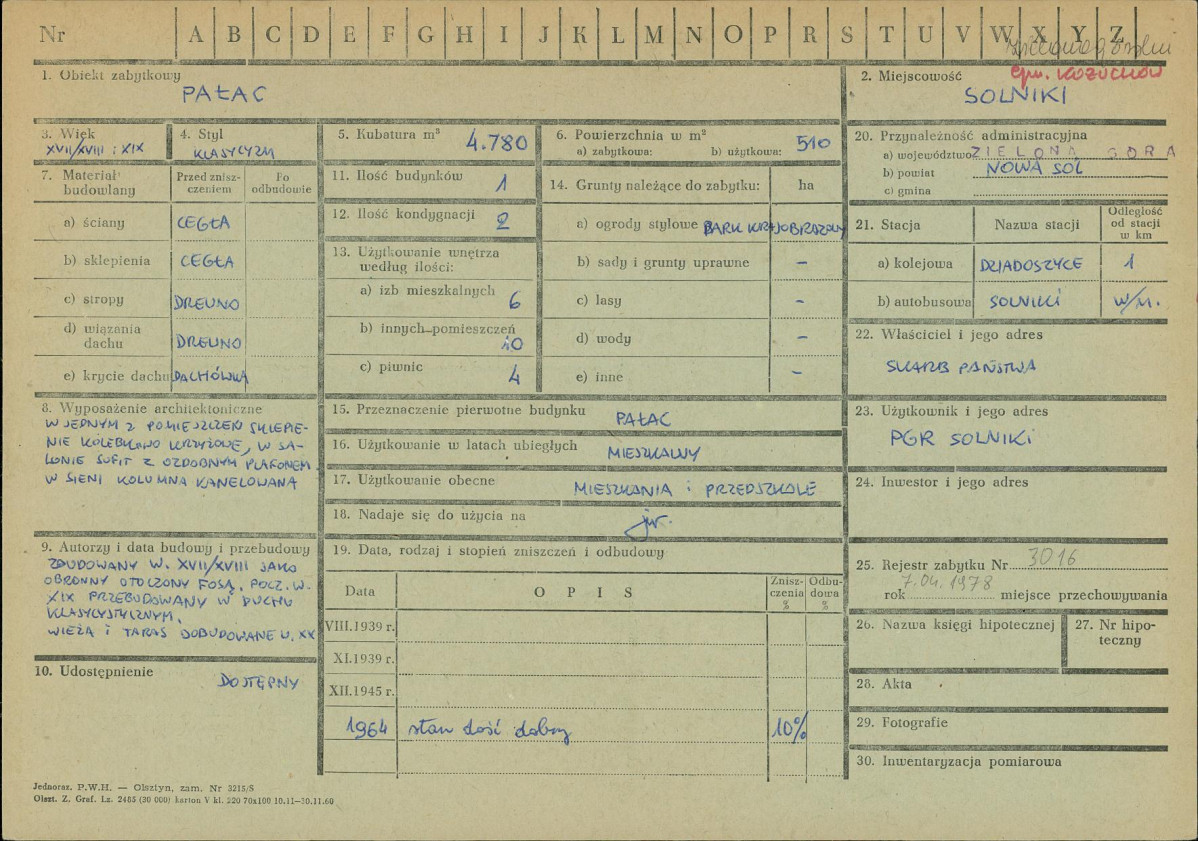 Nr A B C D E F G H I J K L M N O P R S T U V W X Y Z
gm. KOŻUCHÓW
1. Obiekt zabytkowy
PAŁAC
2. Miejscowość
SOLNIKI
3. Wiek
XVII/XVIII i XIX
4. Styl
KLASYCYZM
5. Kubatura m³ 4.780
6. Powierzchnia w m²
a) zabytkowa: b) użytkowa: 510
7. Materiał budowlany
Przed zniszczeniem
Po odbudowie
a) ściany CEGŁA
b) sklepienia CEGŁA
c) stropy DREWNO
d) wiązania dachu DREWNO
e) krycie dachu DACHÓWKA
8. Wyposażenie architektoniczne
W JEDNYM Z POMIESZCZEŃ SKLEPIE-
NIE KOLEBKOWO KRZYŻOWE, W SA-
LONIE SUFIT Z OZDOBNYM PLAFONEM
W SIENI KOLUMNA KANELOWANA
9. Autorzy i data budowy i przebudowy
ZBUDOWANY W. XVII/XVIII JAKO
OBRONNY OTOCZONY FOSĄ, POCZ. W.
XIX PRZEBUDOWANY W DUCHU
KLASYCYSTYCZNYM.
WIEŻA I TARAS DOBUDOWANE W. XX
10. Udostępnienie
DOSTĘPNY
11. Ilość budynków 1
12. Ilość kondygnacji 2
13. Użytkowanie wnętrza
według ilości:
a) izb mieszkalnych 6
b) innych pomieszczeń
10
c) piwnic 4
14. Grunty należące do zabytku: ha
a) ogrody stylowe PARK KRAJOBRAZOWY
b) sady i grunty uprawne –
c) lasy –
d) wody –
e) inne –
15. Przeznaczenie pierwotne budynku PAŁAC
16. Użytkowanie w latach ubiegłych MIESZKALNY
17. Użytkowanie obecne MIESZKANIA i PRZEDSZKOLE
18. Nadaje się do użycia na jw.
19. Data, rodzaj i stopień zniszczeń i odbudowy
Data
O P I S
Znisz-
czenia
%
Odbu-
dowa
%
VIII.1939 r.
XI.1939 r.
XII.1945 r.
1964 stan dość dobry 10%
20. Przynależność administracyjna
a) województwo ZIELONA GÓRA
b) powiat NOWA SÓL
c) gmina
21. Stacja
Nazwa stacji
Odległość
od stacji
w km
a) kolejowa DZIADOSZYCE 1
b) autobusowa SOLNIKI W/M.
22. Właściciel i jego adres
SKARB PAŃSTWA
23. Użytkownik i jego adres
PGR SOLNIKI
24. Inwestor i jego adres
25. Rejestr zabytku Nr 3016
rok 7.04.1978 miejsce przechowywania
26. Nazwa księgi hipotecznej
27. Nr hipo-
teczny
28. Akta
29. Fotografie
30. Inwentaryzacja pomiarowa
Jednoraz. P.W.H. — Olsztyn, zam. Nr 3215/S
Olszt. Z. Graf. Lz. 2485 (30 000) karton V kl. 220 70x100 10.11—30.11.60